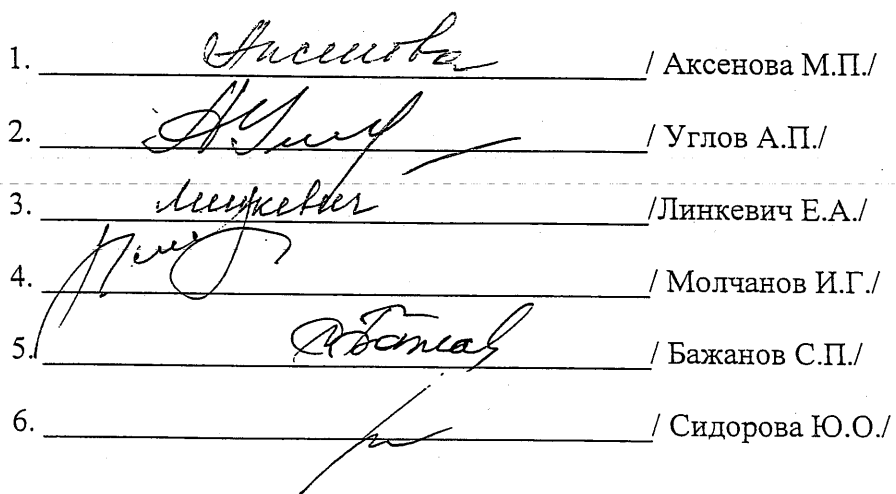 1. Аксенова / Аксенова М.П./
2. А.Угл / Углов А.П./
3. Линкевич /Линкевич Е.А./
4. / Молчанов И.Г./
5. / Бажанов С.П./
6. / Сидорова Ю.О./